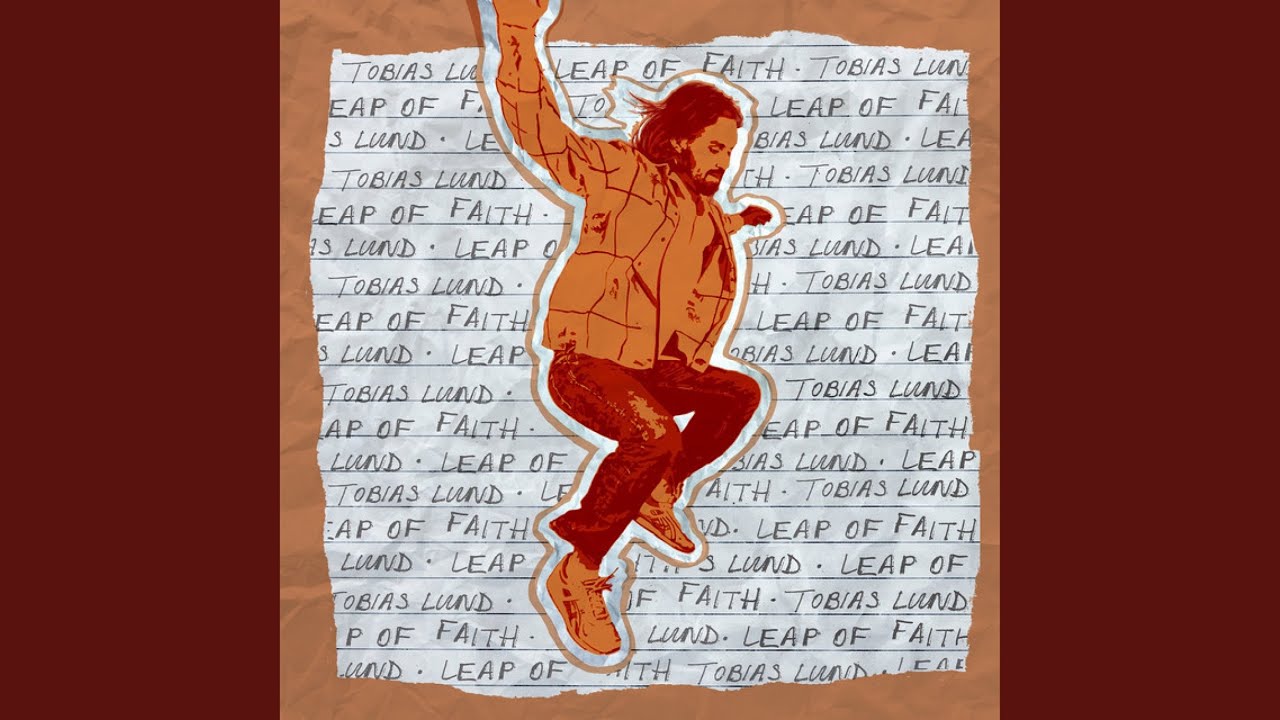 TOBIAS LU LEAP OF FAITH · TOBIAS LUND
EAP OF FA TO LEAP OF FAI
S LUND · LE BIAS LUND · LEA
TOBIAS LUND TH · TOBIAS LUND
EAP OF FAITH · EAP OF FAIT
AS LUND · LEAP O IAS LUND · LEA
TOBIAS LUND · H · TOBIAS LUND
EAP OF FAITH LEAP OF FAIT
S LUND · LEAP OBIAS LUND · LEA
TOBIAS LUND · TOBIAS LUND
AP OF FAITH · EAP OF FAITH
LUND · LEAP OF BIAS LUND · LEAP
TOBIAS LUND · LE AITH · TOBIAS LUND
EAP OF FAITH ND · LEAP OF FAITH
LUND · LEAP AITH S LUND · LEAP OF
TOBIAS LUND · OF FAITH · TOBIAS LUND
P OF FAITH · LUND · LEAP OF FAITH
LUND · LEAP OF AITH TOBIAS LUND · LEAP